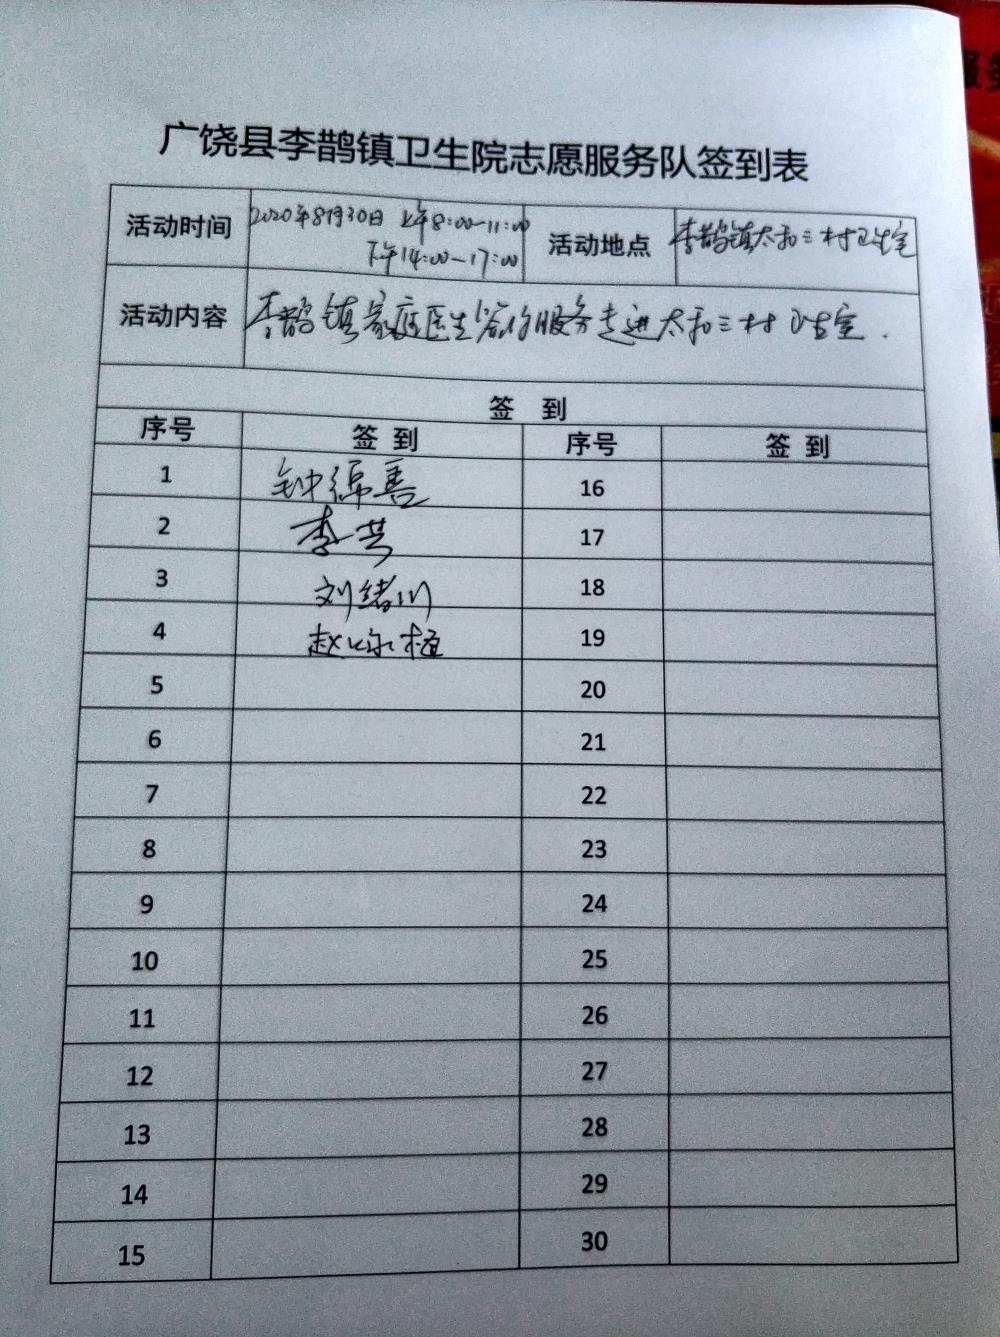 广饶县李鹊镇卫生院志愿服务队签到表
活动时间
2020年8月30日 上午8:00-11:00
下午14:00-17:00
活动地点
李鹊镇太和三村卫生室
活动内容
李鹊镇家庭医生签约服务走进太和三村卫生室.
签 到
序号 签到 序号 签到
1 钟绵善 16
2 李 17
3 刘绪川 18
4 赵 19
5 20
6 21
7 22
8 23
9 24
10 25
11 26
12 27
13 28
14 29
15 30
服务